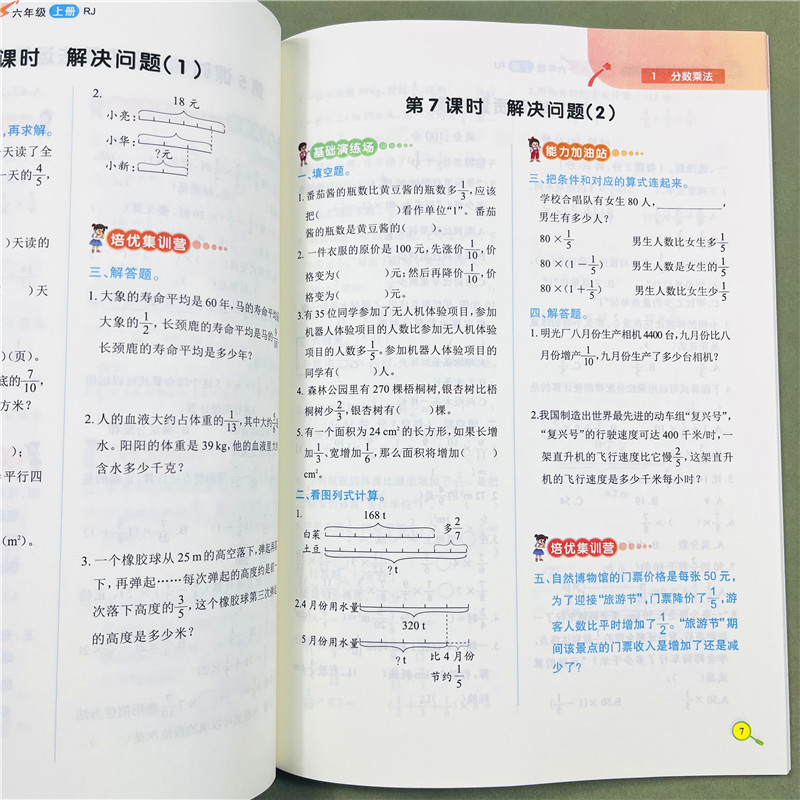 六年级 上册 RJ
课时 解决问题(1)
，再求解。
天读了全
一天的4/5，
)天读的
)天
)(页)。
底的7/10，
方米？
);
平行四
(m²)。
2.
18 元
小亮：
小华：
?元
小新：
培优集训营
三、解答题。
1. 大象的寿命平均是 60 年，马的寿命平均
大象的1/2，长颈鹿的寿命平均是马的
长颈鹿的寿命平均是多少年？
2. 人的血液大约占体重的1/13，其中大约
水。阳阳的体重是 39 kg，他的血液里大
含水多少千克？
3. 一个橡胶球从 25 m 的高空落下，弹起
下，再弹起……每次弹起的高度约是前一
次落下高度的3/5，这个橡胶球第三次弹
的高度是多少米？
1 分数乘法
第 7 课时 解决问题(2)
基础演练场
一、填空题。
1. 番茄酱的瓶数比黄豆酱的瓶数多1/3，应该
把( )看作单位“1”。番茄
酱的瓶数是黄豆酱的( )。
2. 一件衣服的原价是 100 元，先涨价1/10，价
格变为( )元；然后再降价1/10，价
格变为( )元。
3. 有 35 位同学参加了无人机体验项目，参加
机器人体验项目的人数比参加无人机体验
项目的人数多1/5。参加机器人体验项目的
同学有( )人。
4. 森林公园里有 270 棵梧桐树，银杏树比梧
桐树少2/3，银杏树有( )棵。
5. 有一个面积为 24 cm²的长方形，如果长增
加1/3、宽增加1/6，那么面积将增加( )
cm²。
二、看图列式计算。
1.
168 t
白菜
多2/7
土豆
? t
2. 4 月份用水量
320 t
5 月份用水量
? t
比 4 月份
节约1/5
能力加油站
三、把条件和对应的算式连起来。
学校合唱队有女生 80 人，________，
男生有多少人？
80×1/5 男生人数比女生多1/5
80×(1-1/5) 男生人数是女生的1/5
80×(1+1/5) 男生人数比女生少1/5
四、解答题。
1. 明光厂八月份生产相机 4400 台，九月份比八
月份增产1/10，九月份生产了多少台相机？
2. 我国制造出世界最先进的动车组“复兴号”，
“复兴号”的行驶速度可达 400 千米/时，一
架直升机的飞行速度比它慢2/5，这架直升
机的飞行速度是多少千米每小时？
培优集训营
五、自然博物馆的门票价格是每张 50 元，
为了迎接“旅游节”，门票降价了1/5，游
客人数比平时增加了1/2。“旅游节”期
间该景点的门票收入是增加了还是减
少了？
7